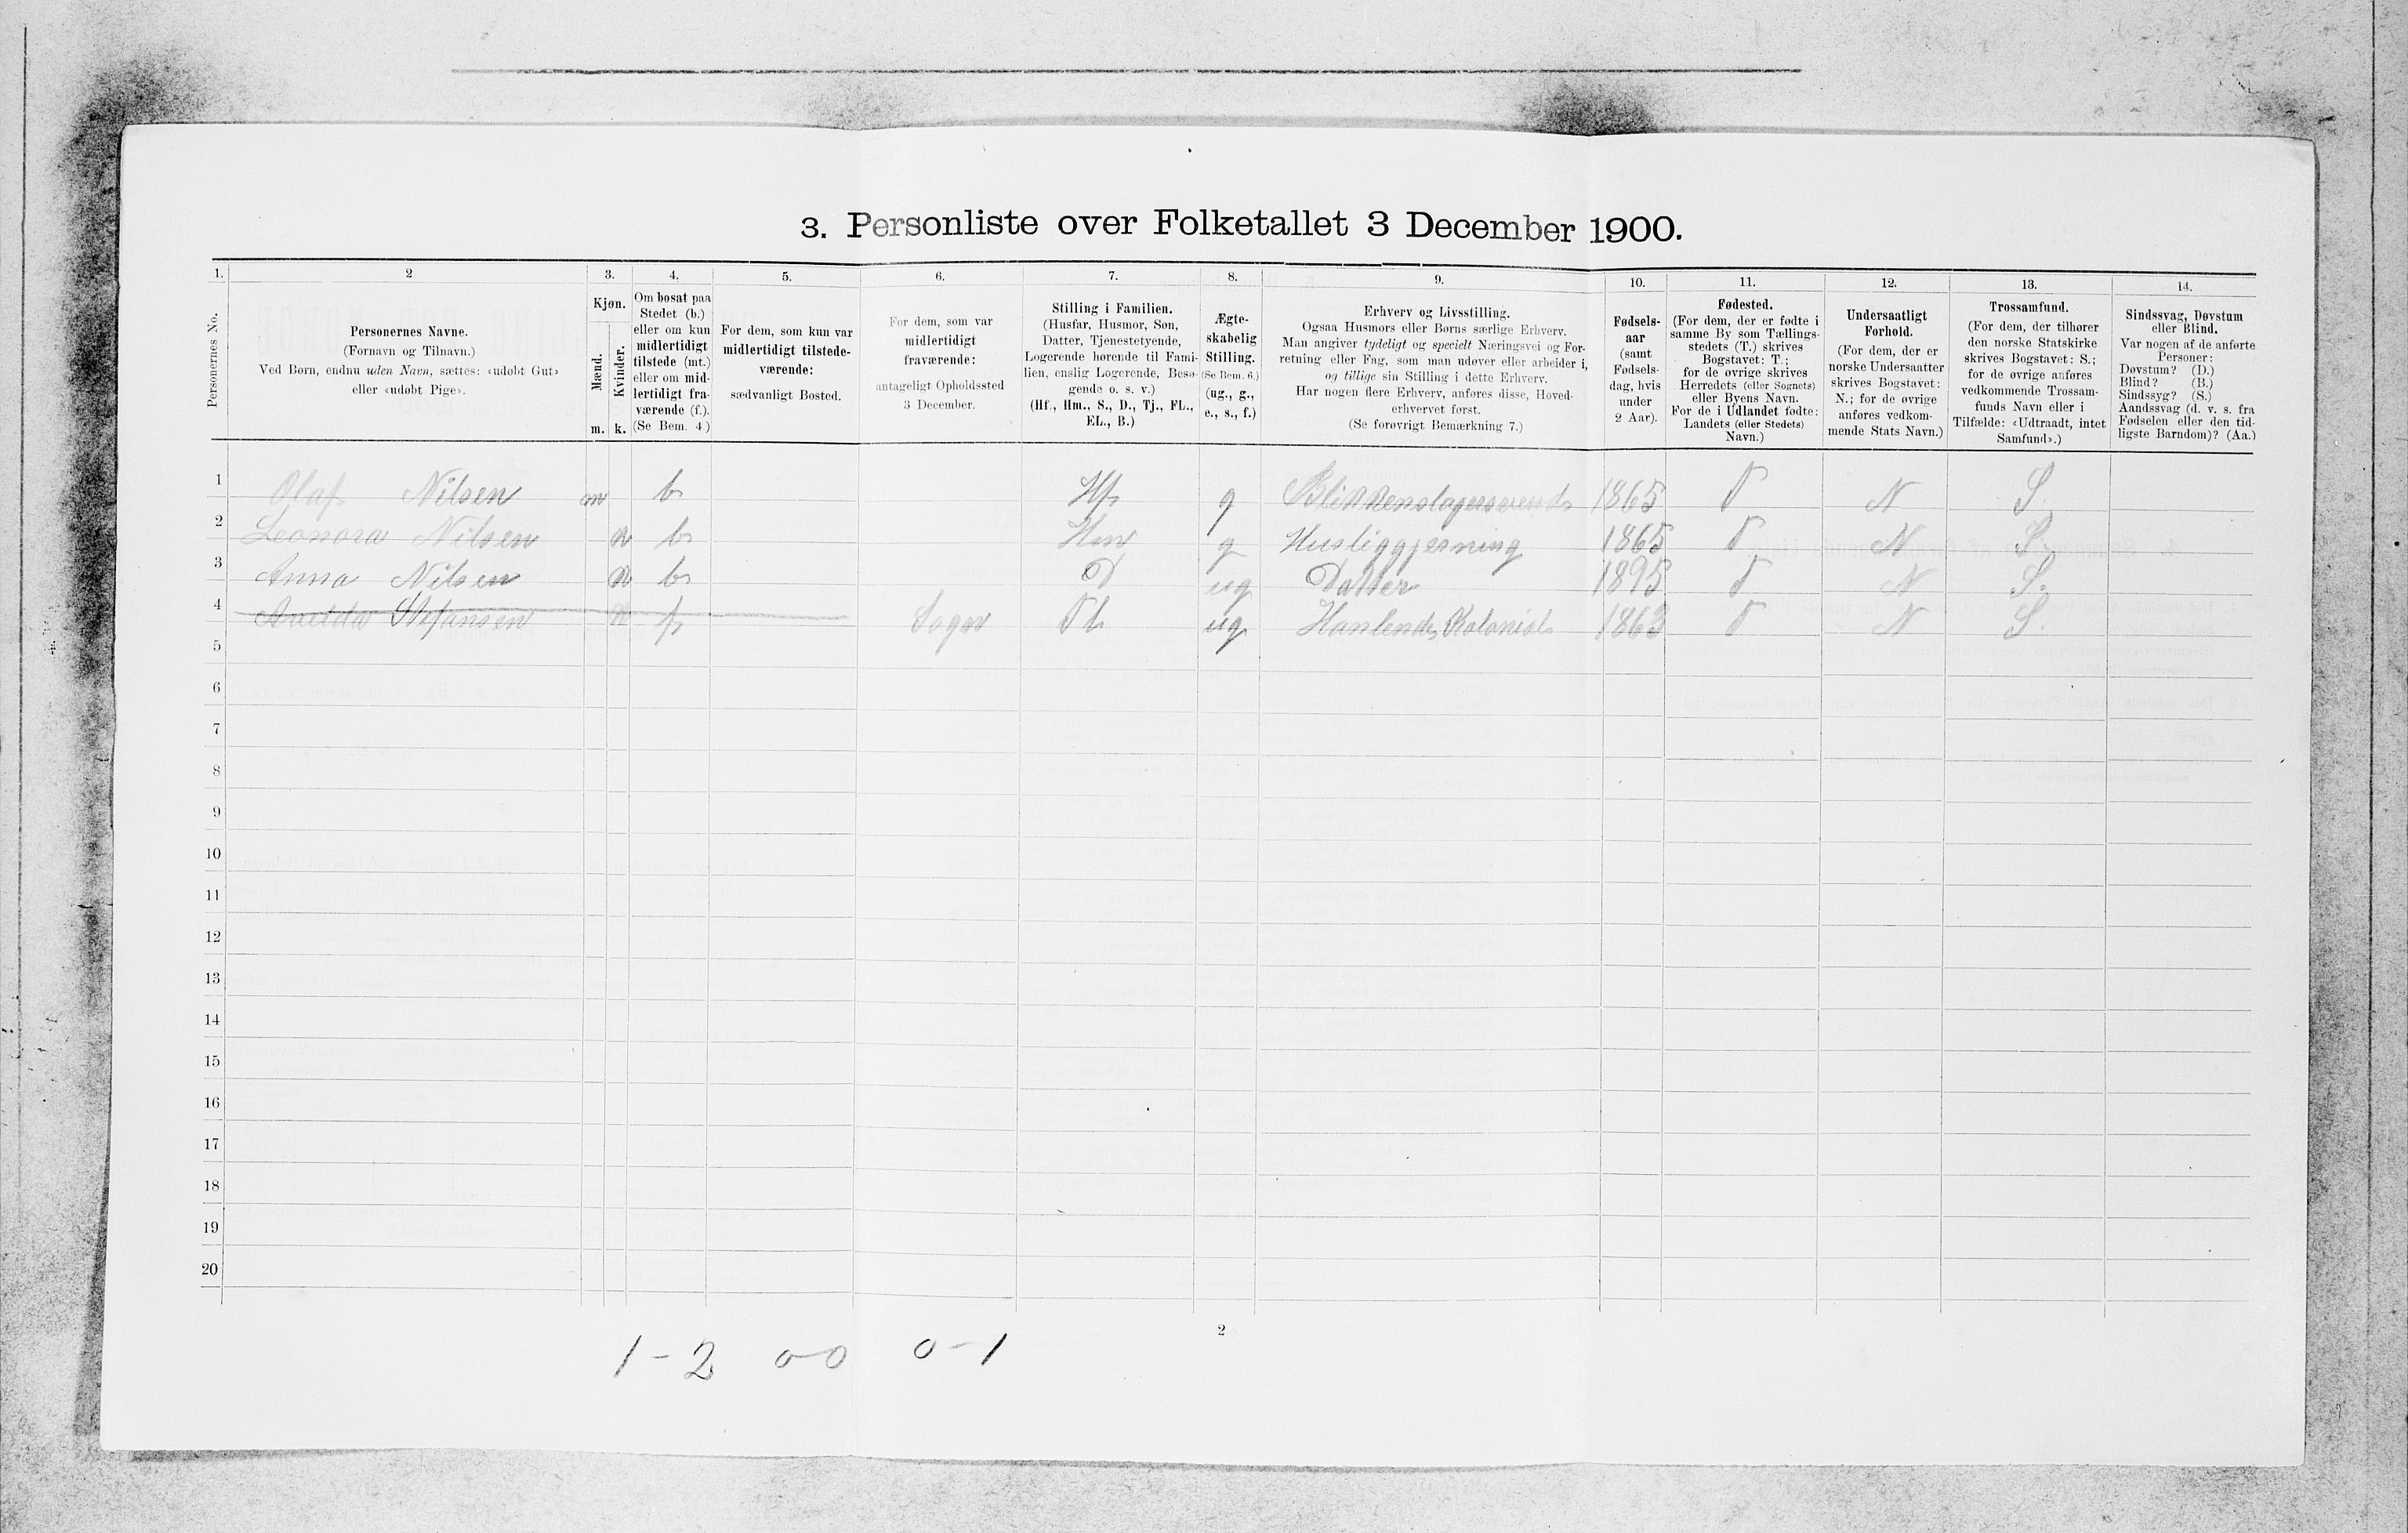 3. Personliste over Folketallet 3 December 1900.
1. 2 3. 4. 5. 6. 7. 8. 9. 10. 11. 12. 13. 14.
Personernes No.
Personernes Navne.
(Fornavn og Tilnavn.)
Ved Børn, endnu uden Navn, sættes: «udøbt Gut»
eller «udøbt Pige».
Kjøn.
Mænd.
Kvinder.
m. k.
Om bosat paa
Stedet (b.)
eller om kun
midlertidigt
tilstede (mt.)
eller om mid-
lertidigt fra-
værende (f.).
(Se Bem. 4.)
For dem, som kun var
midlertidigt tilstede-
værende:
sædvanligt Bosted.
For dem, som var
midlertidigt
fraværende:
antageligt Opholdssted
3 December.
Stilling i Familien.
(Husfar, Husmor, Søn,
Datter, Tjenestetyende,
Logerende hørende til Fami-
lien, enslig Logerende, Besø-
gende o. s. v.)
(Hf., Hm., S., D., Tj., FL.,
EL., B.)
Ægte-
skabelig
Stilling.
(Se Bem. 6.)
(ug., g.,
e., s., f.)
Erhverv og Livsstilling.
Ogsaa Husmors eller Børns særlige Erhverv.
Man angiver tydeligt og specielt Næringsvei og For-
retning eller Fag, som man udøver eller arbeider i,
og tillige sin Stilling i dette Erhverv.
Har nogen flere Erhverv, anføres disse, Hoved-
erhvervet først.
(Se forøvrigt Bemærkning 7.)
Fødsels-
aar
(samt
Fødsels-
dag, hvis
under
2 Aar).
Fødested.
(For dem, der er fødte i
samme By som Tællings-
stedets (T.) skrives
Bogstavet: T.;
for de øvrige skrives
Herredets (eller Sognets)
eller Byens Navn.
For de i Udlandet fødte:
Landets (eller Stedets)
Navn.)
Undersaatligt
Forhold.
(For dem, der er
norske Undersaatter
skrives Bogstavet:
N.; for de øvrige
anføres vedkom-
mende Stats Navn.)
Trossamfund.
(For dem, der tilhører
den norske Statskirke
skrives Bogstavet: S.;
for de øvrige anføres
vedkommende Trossam-
funds Navn eller i
Tilfælde: «Udtraadt, intet
Samfund».)
Sindssvag, Døvstum
eller Blind.
Var nogen af de anførte
Personer:
Døvstum? (D.)
Blind? (B.)
Sindssyg? (S.)
Aandssvag (d. v. s. fra
Fødselen eller den tid-
ligste Barndom)? (Aa.)
1 Olaf Nilsen m b Hf g Blikkenslagersvend 1865 T N S.
2 Leonora Nilsen k b Hm g Husliggjerning 1865 T N S.
3 Anna Nilsen k b D ug Datter 1895 T N S.
4 k f Sogn ug 1863 T N S.
5
6
7
8
9
10
11
12
13
14
15
16
17
18
19
20
2
1-2 0-0 0-1